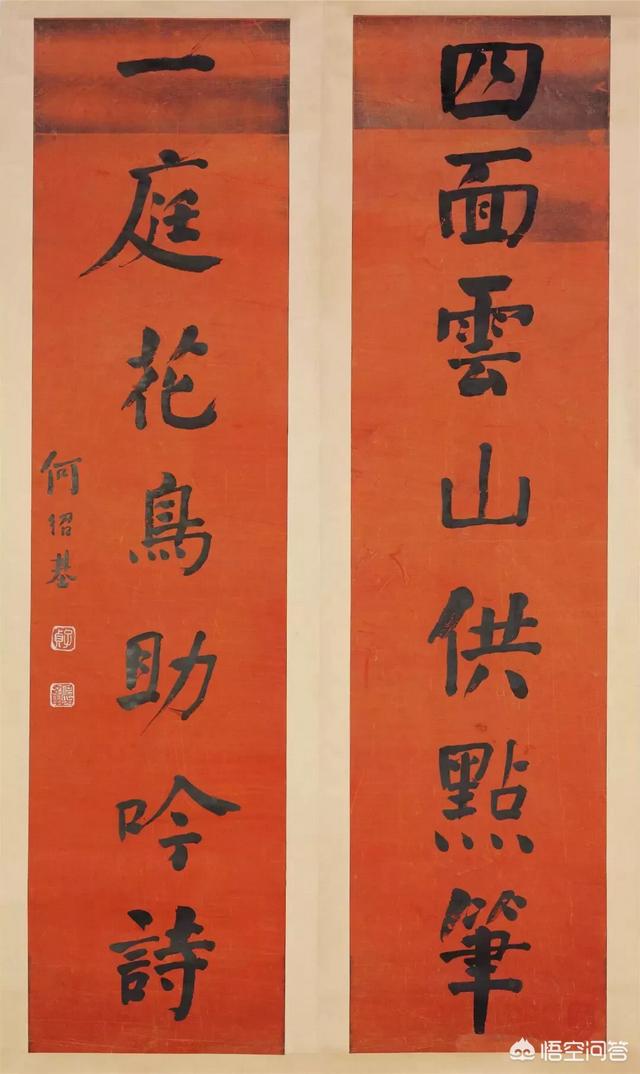 四面雲山供點筆
一庭花鳥助吟詩
何紹基
子貞
悟空问答